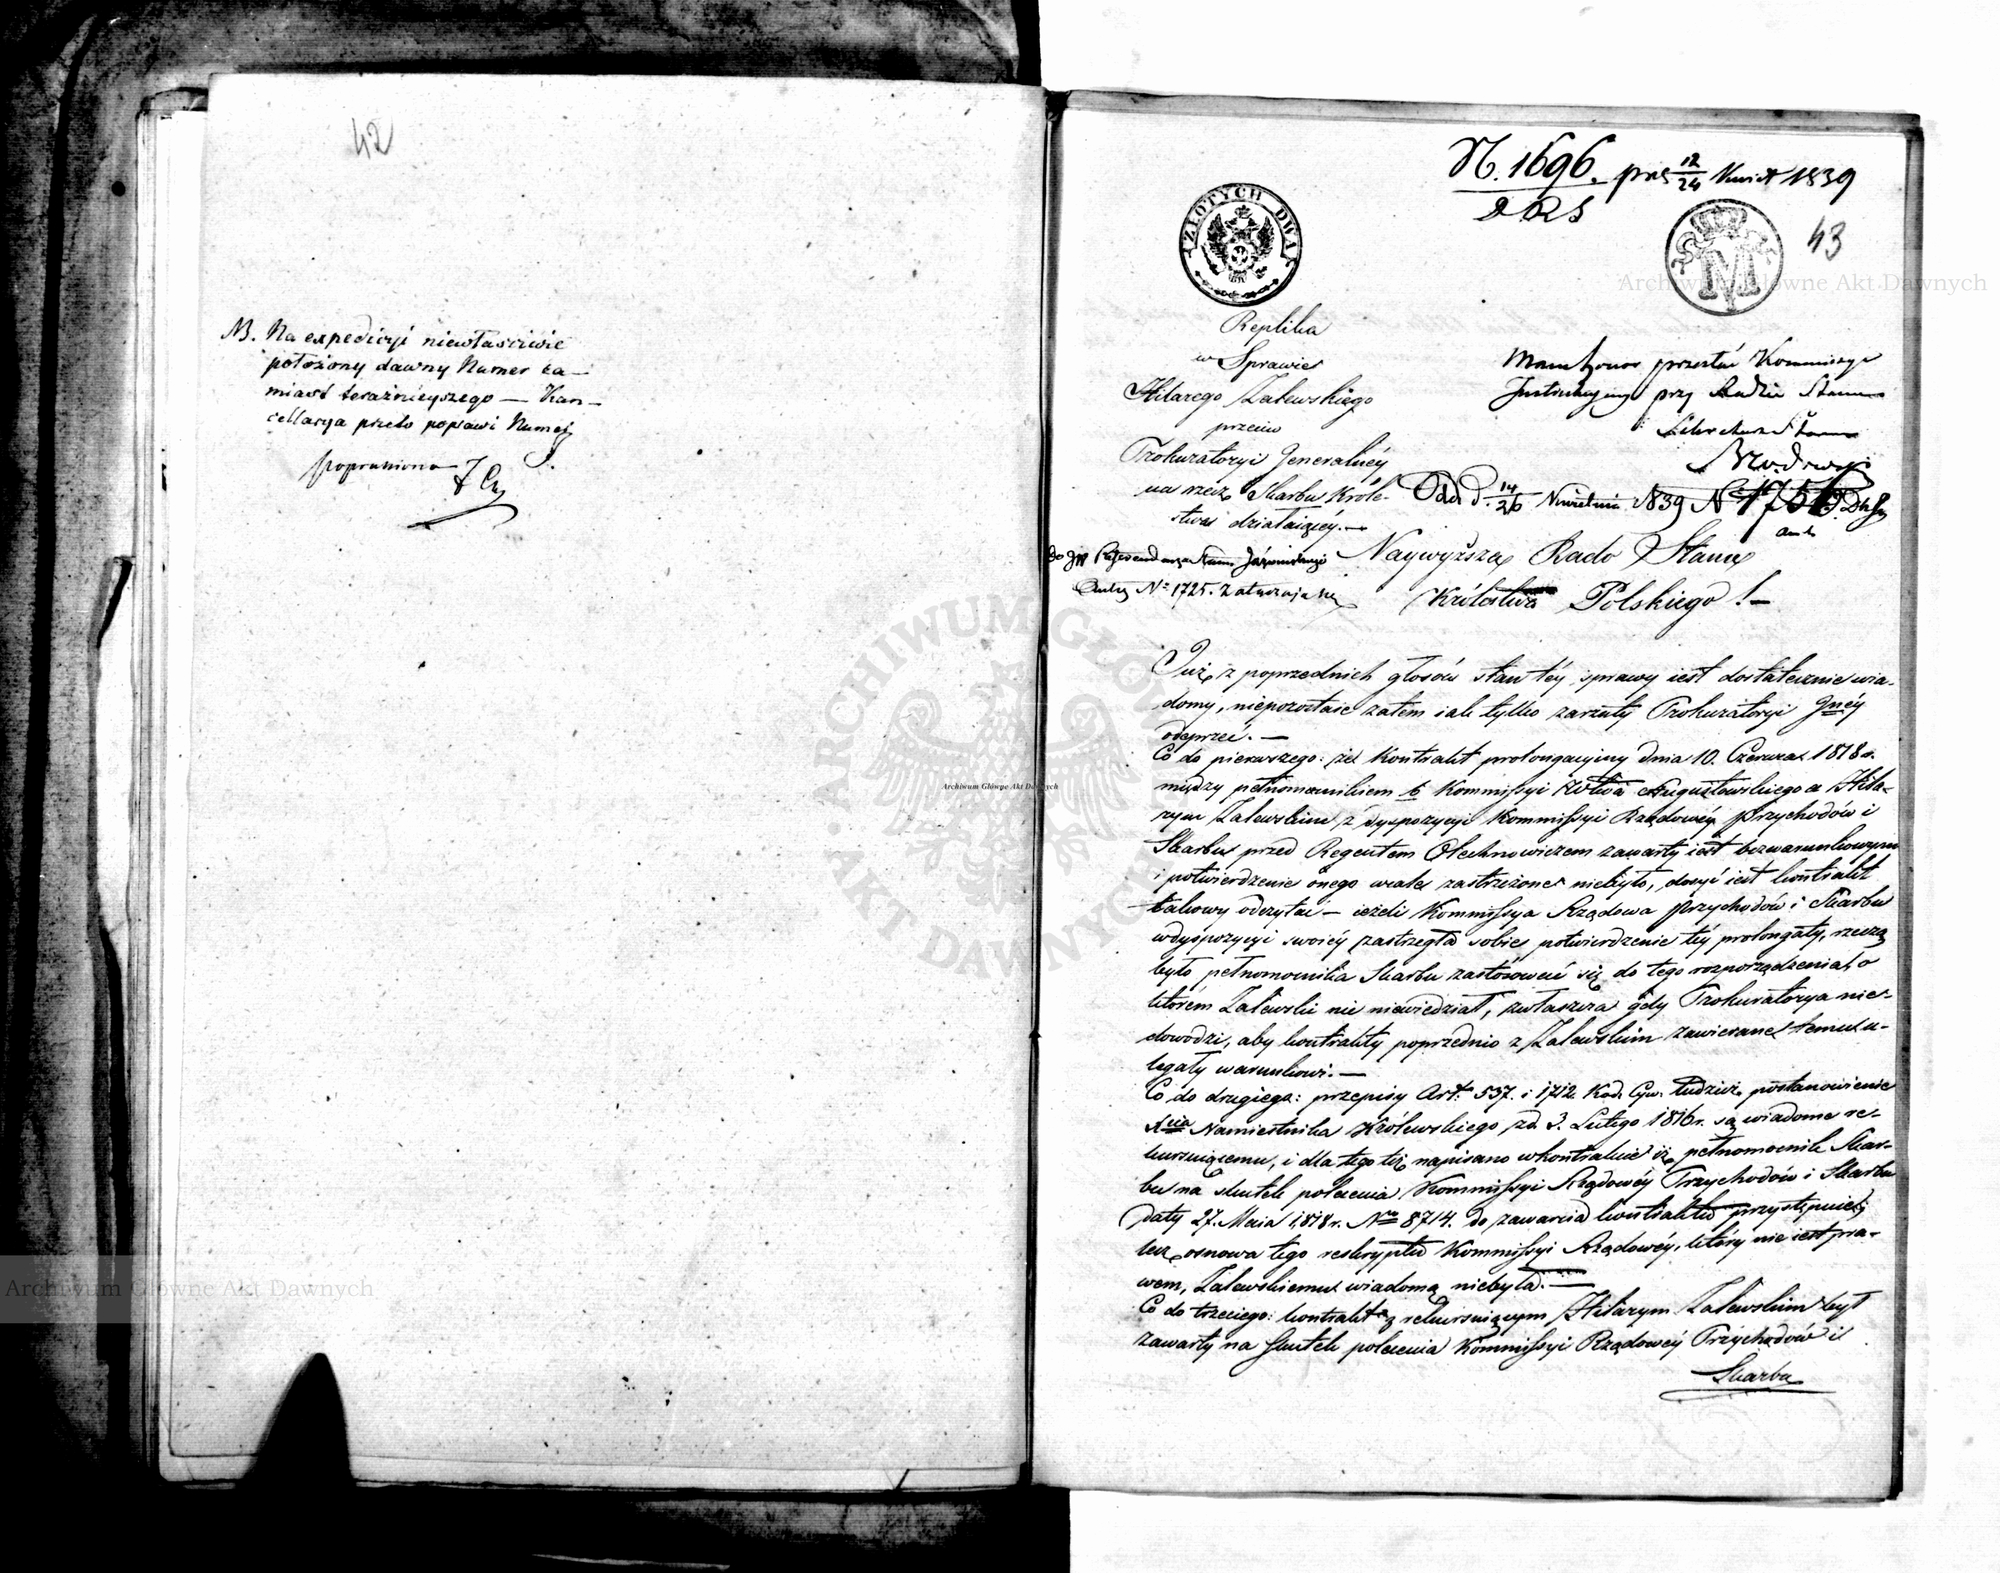 42
NB. Na expedicyi niewłaściwie
położony dawny Numer za-
miast teraźnieyszego — Kan-
cellarya przeto poprawi Numer
poprawiono
N. 1696. pres 12/24 Kwiet 1839
43
ZŁOTYCH DWA
M
Replika
w Sprawie
Hilarego Zalewskiego
przeciw
Prokuratoryi Generalnéy
na rzecz Skarbu Króle-
stwa działaiącéy.—
Mam honor przesłać Kommissyi
Instrukcyiney przy Radzie Stanu
Sekretarz Stanu
Odd. d. 14/26 Kwietnia 1839 N
Do JW Referendarza Stanu
N= 1725. załączaiąc
Naywyższa Rado Stanu
Królestwa Polskiego!—
Już z poprzednich głosów stan téy sprawy iest dostatecznie wia-
domy, niepozostaie zatem iak tylko zarzuty Prokuratoryi Gnéy
odeprzeć.—
Co do pierwszego: że Kontrakt prolongacyiny dnia 10. Czerwca 1818 r.
między pełnomocnikiem b. Kommissyi Wwa Augustowskiego a Hila-
rym Zalewskim z dyspozycyi Kommissyi Rządowéy Przychodów i
Skarbu przed Regentem Olechnowiczem zawarty iest bezwarunkowym
i potwierdzenie onego wcale zastrzeżone niebyło, dosyć iest kontrakt
takowy odczytać — ieżeli Kommissya Rządowa Przychodów i Skarbu
w dyspozycyi swoiéy zastrzegła sobie potwierdzenie téy prolongaty, rzeczą
było pełnomocnika Skarbu zastósować się do tego rozporządzenia, o
którém Zalewski nic niewiedział, zwłaszcza gdy Prokuratorya nie-
dowodzi, aby kontrakty poprzednio z Zalewskim zawierane temu u-
legały warunkowi.—
Co do drugiego: przepisy Art: 537. i 1712. Kod. Cyw. tudzież postanowienie
Xcia Namiestnika Królewskiego z d. 3. Lutego 1816 r. są wiadome re-
kursuiącemu, i dla tego też napisano w kontrakcie iż pełnomocnik Skar-
bu na skutek polecenia Kommissyi Rządowéy Przychodów i Skarbu
daty 27. Maia 1818 r. Nro 8714. do zawarcia kontraktu przystępuie,
lecz osnowa tego reskryptu Kommissyi Rządowéy, który nie iest pra-
wem, Zalewskiemu wiadomą niebyła.—
Co do trzeciego: kontrakt z rekursuiącym Hilarym Zalewskim był
zawarty na skutek polecenia Kommissyi Rządowéy Przychodów i
Skarbu
Archiwum Główne Akt Dawnych
Archiwum Główne Akt Dawnych
Archiwum Główne Akt Dawnych
ARCHIWUM GŁÓWNE AKT DAWNYCH